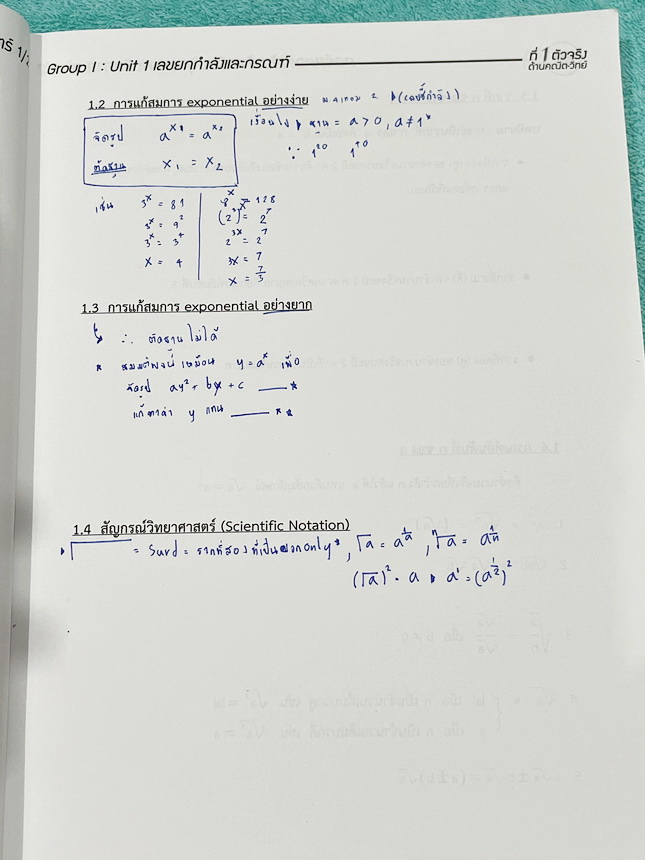 Group I : Unit 1 เลขยกกำลังและกรณฑ์
ที่ 1 ตัวจริง
ด้านคณิต-วิทย์
1.2 การแก้สมการ exponential อย่างง่าย
(เลขชี้กำลัง)
จัดรูป a^x₁ = a^x₂
ตัดฐาน x₁ = x₂
เงื่อนไข ฐาน = a > 0 , a ≠ 1*
∵ 1²⁰ 1⁴⁰
เช่น 3^x = 81
3^x = 9²
3^x = 3⁴
x = 4
8^x = 128
(2³)^x = 2⁷
2^3x = 2⁷
3x = 7
x = 7/3
1.3 การแก้สมการ exponential อย่างยาก
∴ ตัดฐานไม่ได้
* สมมติพจน์เหมือน y = a^x เพื่อ
จัดรูป ay² + by + c *
แก้หาค่า y แทน * *
1.4 สัญกรณ์วิทยาศาสตร์ (Scientific Notation)
√ = Surd = รากที่สองที่เป็นบวก only* , √a = a^½ , ⁿ√a = a^1/n
(√a)² = a a¹ = (a^½)²